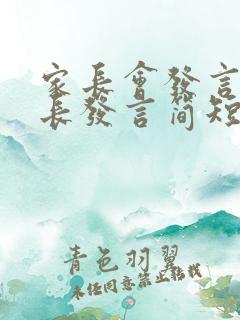 家長會發言
長發言簡短
青色羽翼
未經同意禁止轉載